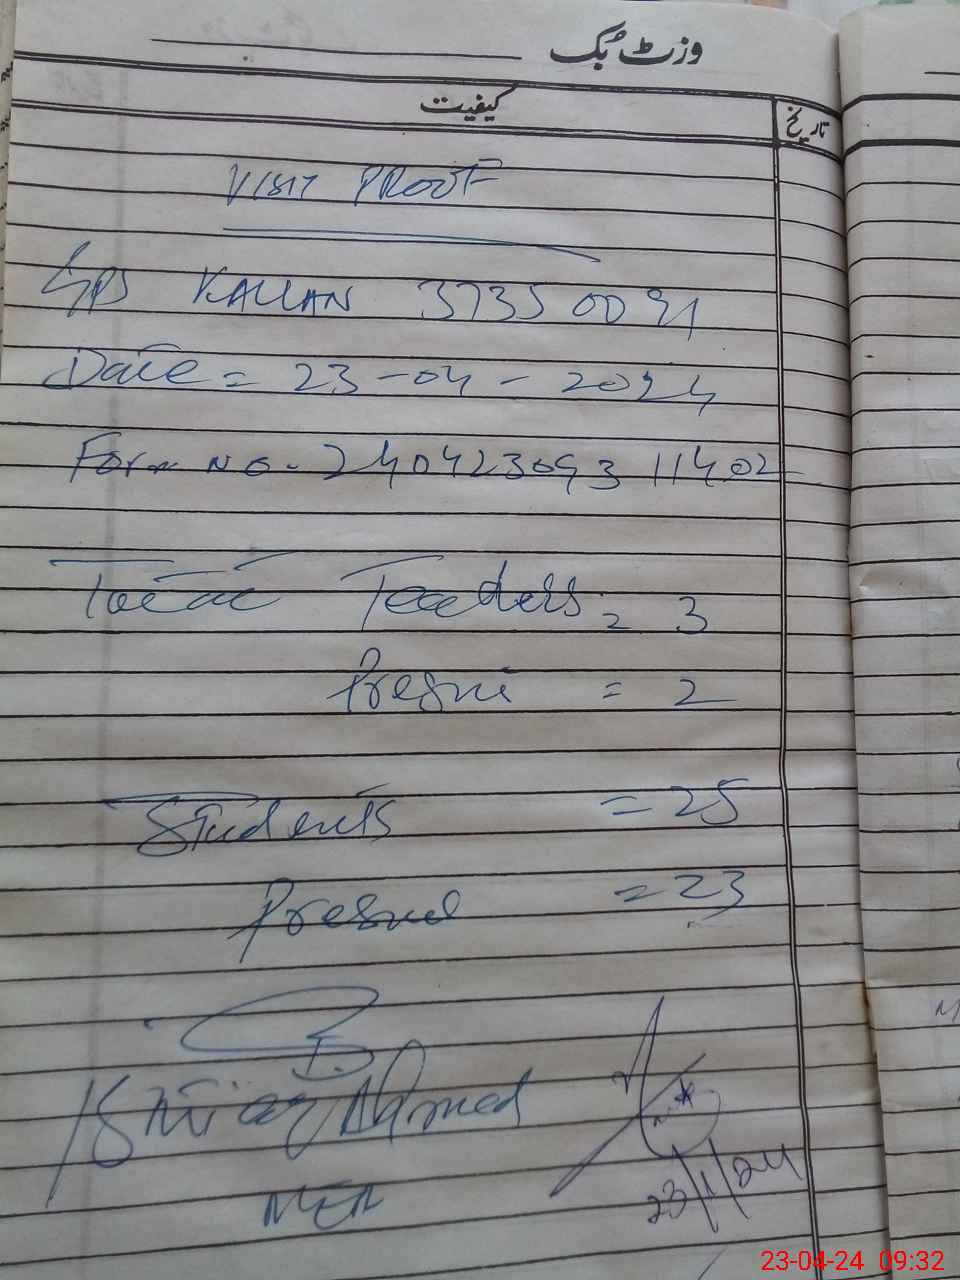 وزٹ بُک
کیفیت
تاریخ
VISIT PROOF
GPS KALLAN 37350091
Date = 23-04-2024
Form NO. 24042309311402
Total Teachers = 3
Present = 2
Students = 25
Present = 23
Ahmed
MEA
23/ /24
23-04-24 09:32